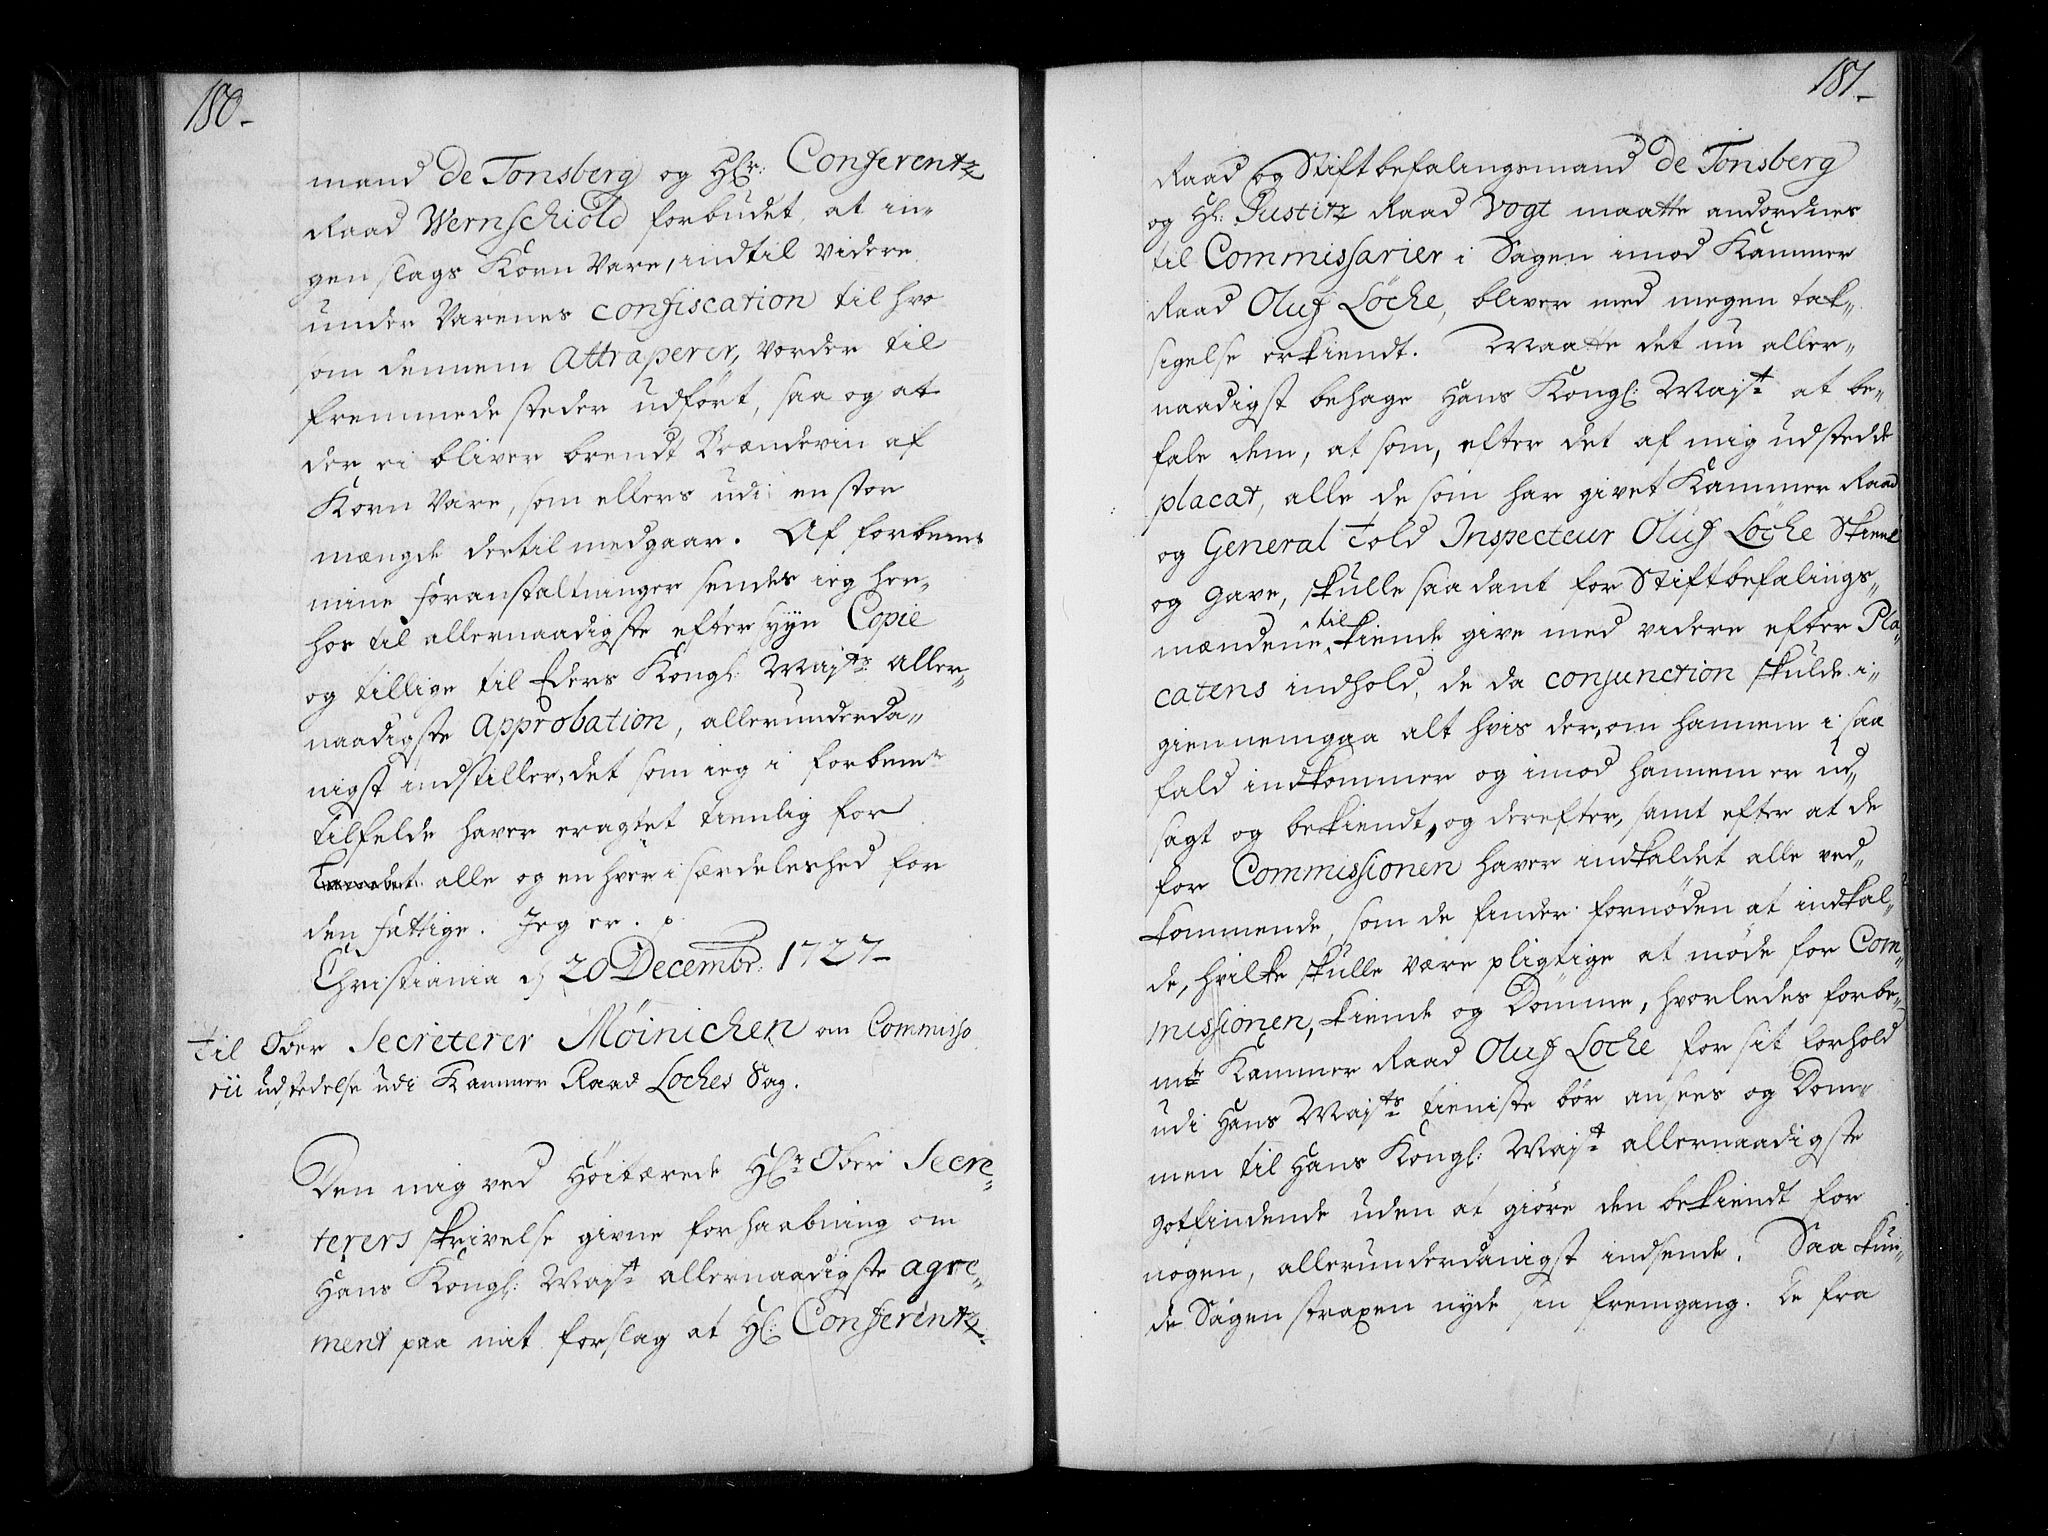 180.
mand de Tonsberg og Hr: Conferentz
Raad Wernschiold forbudet, at in„
gen slags Korn Vare, indtil Videre
under Varenes confiscation til hvo
som dennem Attraperer, vorder til
fremmede steder udført, saa og at
der ei bliver brendt Brændevin af
Korn Vare, som ellers udi en stor
mængde dertil medgaar. Af forbem:te
mine foranstaltninger sendes ieg her„
hos til allernaadigste efter Syn Copie
og tillige til Eders Kongl: Majts aller„
naadigste Approbation, allerunderda„
nigst indstiller, det som ieg i forbemte
tilfelde haver eragtet tienlig for
alle og enhver i særdeleshed for
den fattige. Jeg er. p.
Christiania d 20 Decembr: 1727
Til Over Secreterer Möinichen om Commisso
rii udstedelse udi Kammer Raad Loches Sag.
Den mig ved Høitærede Hr Over Secre„
terers skrivelse givne forhaabning om
Hans Kongl: Majt allernaadigste agre„
ment paa mit forslag at Hr: Conferentz
181.
Raad og Stiftbefalingsmand de Tonsberg
og Hr: Justitz Raad Vogt maatte andordnes
til Commissarier i Sagen imod Kammer
Raad Oluf Löche, bliver med megen tak„
sigelse erkiendt. Maatte det nu aller„
naadigst behage Hans Kongl: Majt at be„
fale dem, at som, efter det af mig udstedde
placat, alle de som har givet Kammer Raad
og General Told Inspecteur Oluf Löche Skienk
og Gave, skulle saadant for Stiftbefalings„
mændene til kiende give med videre efter Pla„
catens indhold, de da conjunction skulde i„
giennemgaa alt hvis der, om hannem i saa
fald indkommer og imod hannem er ud„
sagt og bekiendt, og derefter, samt efter at de
for Commissionen haver indkaldet alle ved„
kommende, som de finder fornöden at indkal„
de, hvilke skulle være pligtige at møde for Com„
missionen, kiende og Dömme, hvorledes forbe„
mte Kammer Raad Oluf Loche for sit forhold
udi Hans Majts tieniste bør ansees og Dom„
men til Hans Kongl: Majt allernaadigste
gotfindende uden at giöre den bekiendt for
nogen, allerunderdanigst indsende. Saa kun„
de Sagen straxen nyde sin fremgang. De fra